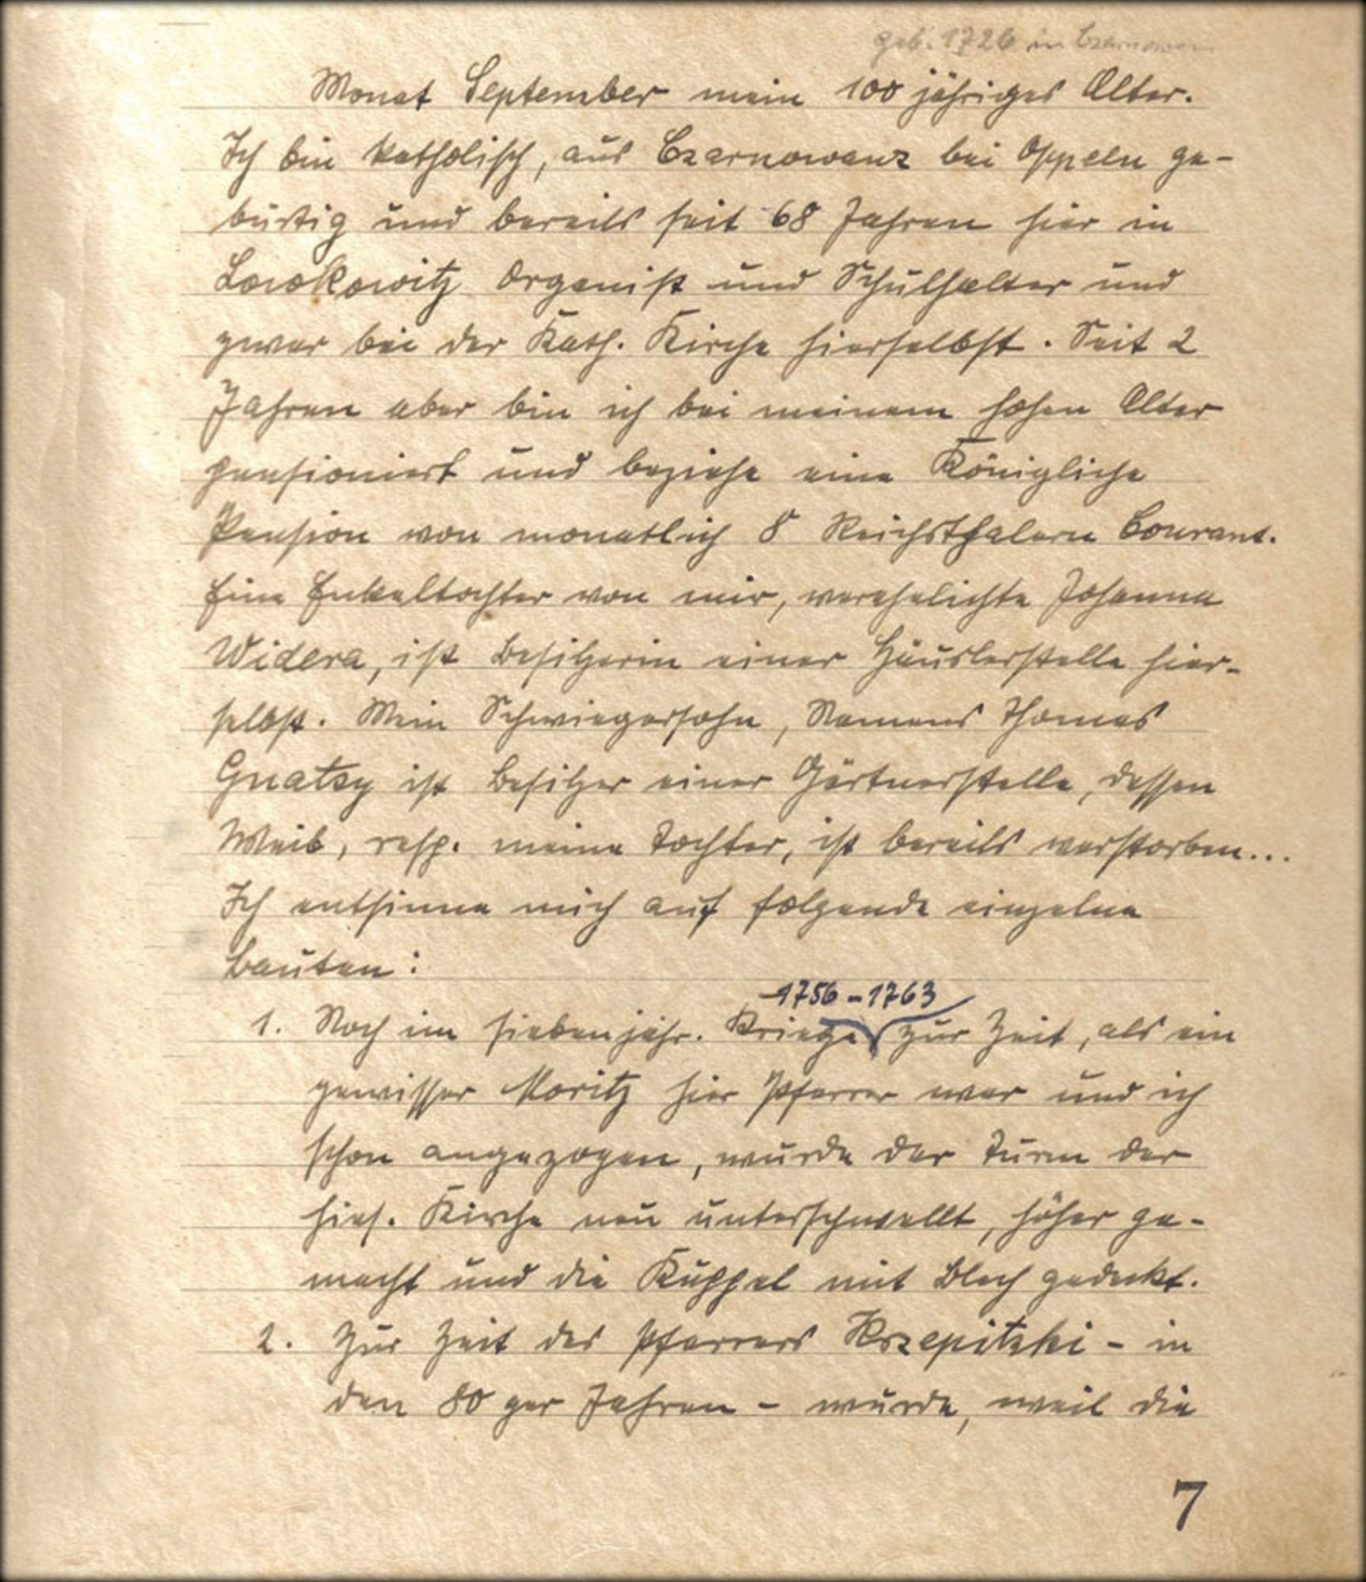 geb. 1726 in Czarnowanz
Monat September mein 100 jähriges Alter.
Ich bin katholisch, aus Czarnowanz bei Oppeln ge-
bürtig und bereits seit 68 Jahren hier in
Lowkowitz Organist und Schulhalter und
zwar bei der Kath. Kirche hierselbst. Seit 2
Jahren aber bin ich bei meinem hohen Alter
pensioniert und beziehe eine Königliche
Pension von monatlich 8 Reichsthalern Courant.
Eine Enkeltochter von mir, verehelichte Johanna
Widera, ist Besitzerin einer Häuslerstelle hier-
selbst. Mein Schwiegersohn, Namens Thomas
Gnatzy ist Besitzer einer Gärtnerstelle, dessen
Weib, resp. meine Tochter, ist bereits verstorben...
Ich entsinne mich auf folgende einzelne
Bauten:
1756 - 1763
1. Noch im siebenjähr. Kriege zur Zeit, als ein
gewisser Moritz hier Pfarrer war und ich
schon angezogen, wurde der Turm der
hies. Kirche neu unterschwellt, höher ge-
macht und die Kuppel mit Blech gedeckt.
2. Zur Zeit des Pfarrers Krzepitzki - in
den 80 ger Jahren - wurde, weil die
7